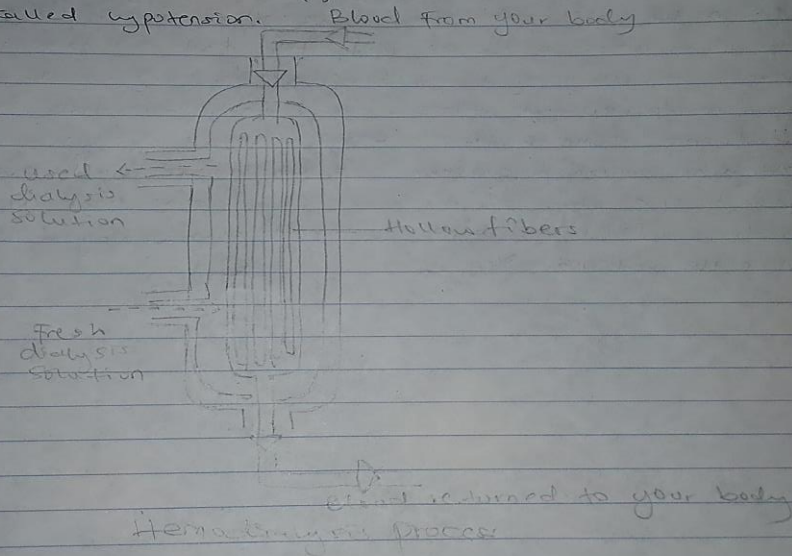 called hypotension. Blood From your body
used
dialysis
solution
Hollow fibers
Fresh
dialysis
solution
Blood returned to your body
Hemodialysis process